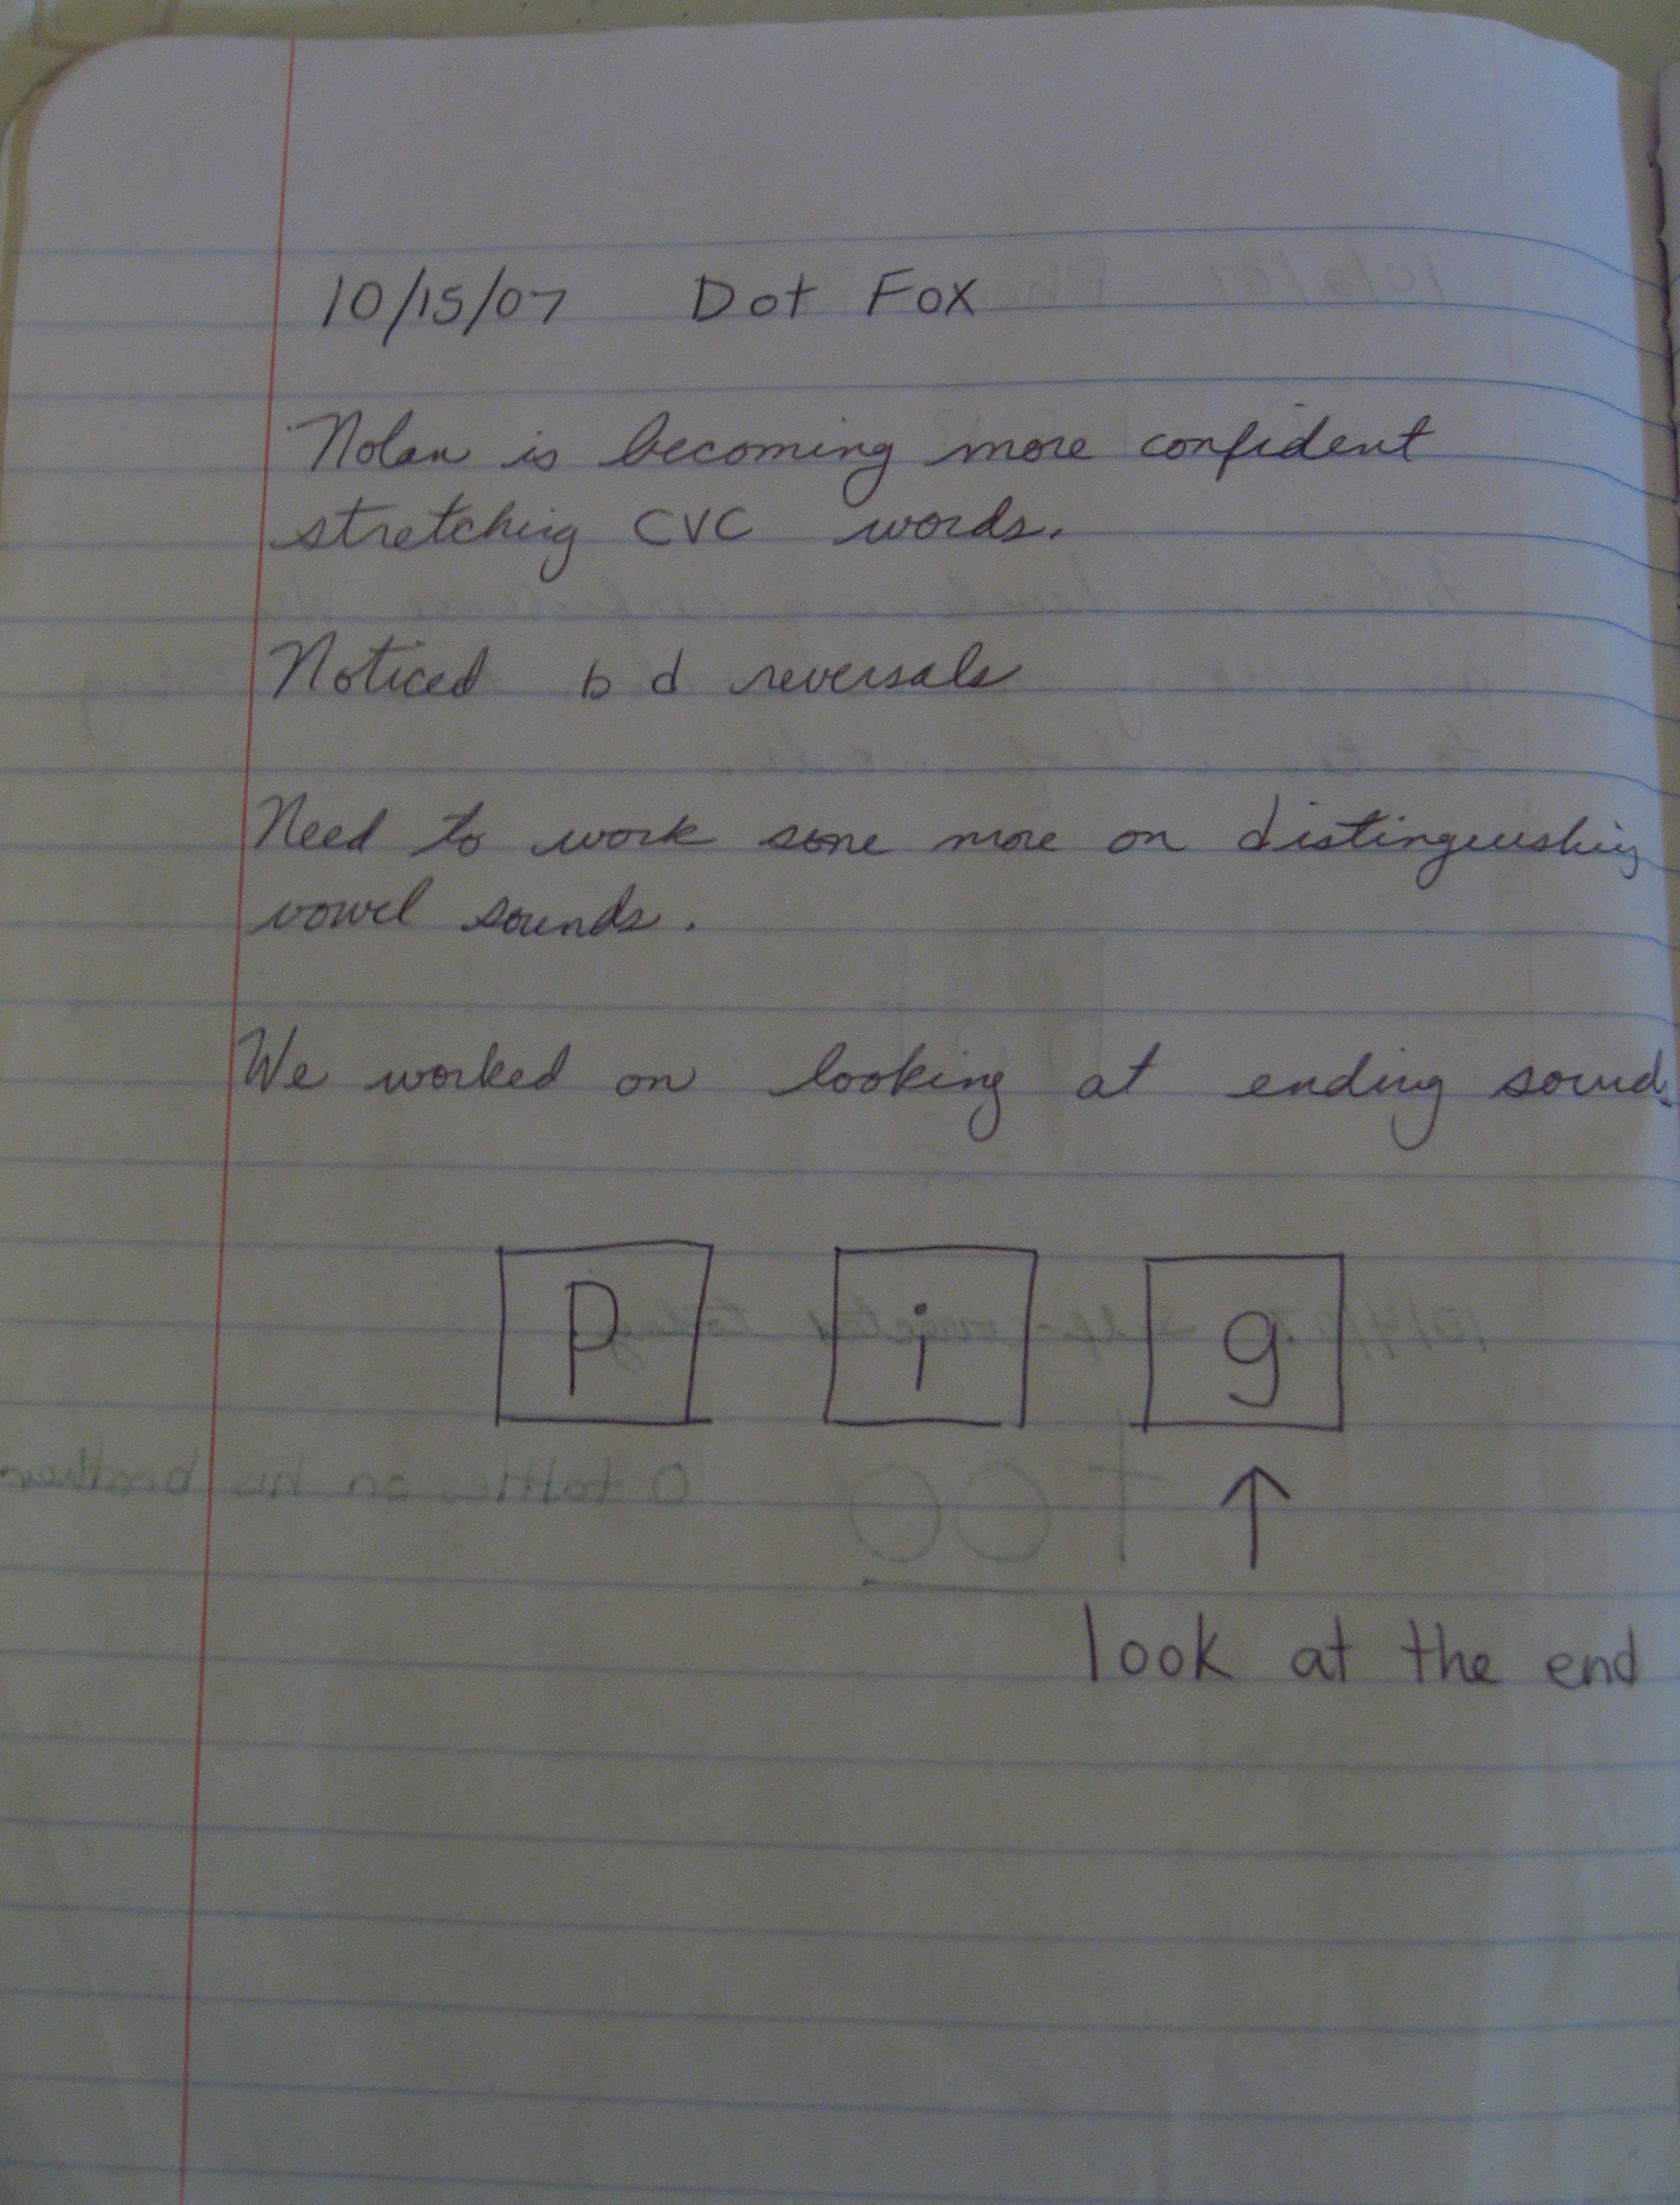 10/15/07 Dot Fox
Nolan is becoming more confident
stretching CVC words.
Noticed b d reversals
Need to work some more on distinguishing
vowel sounds.
We worked on looking at ending sound
P i g
↑
look at the end